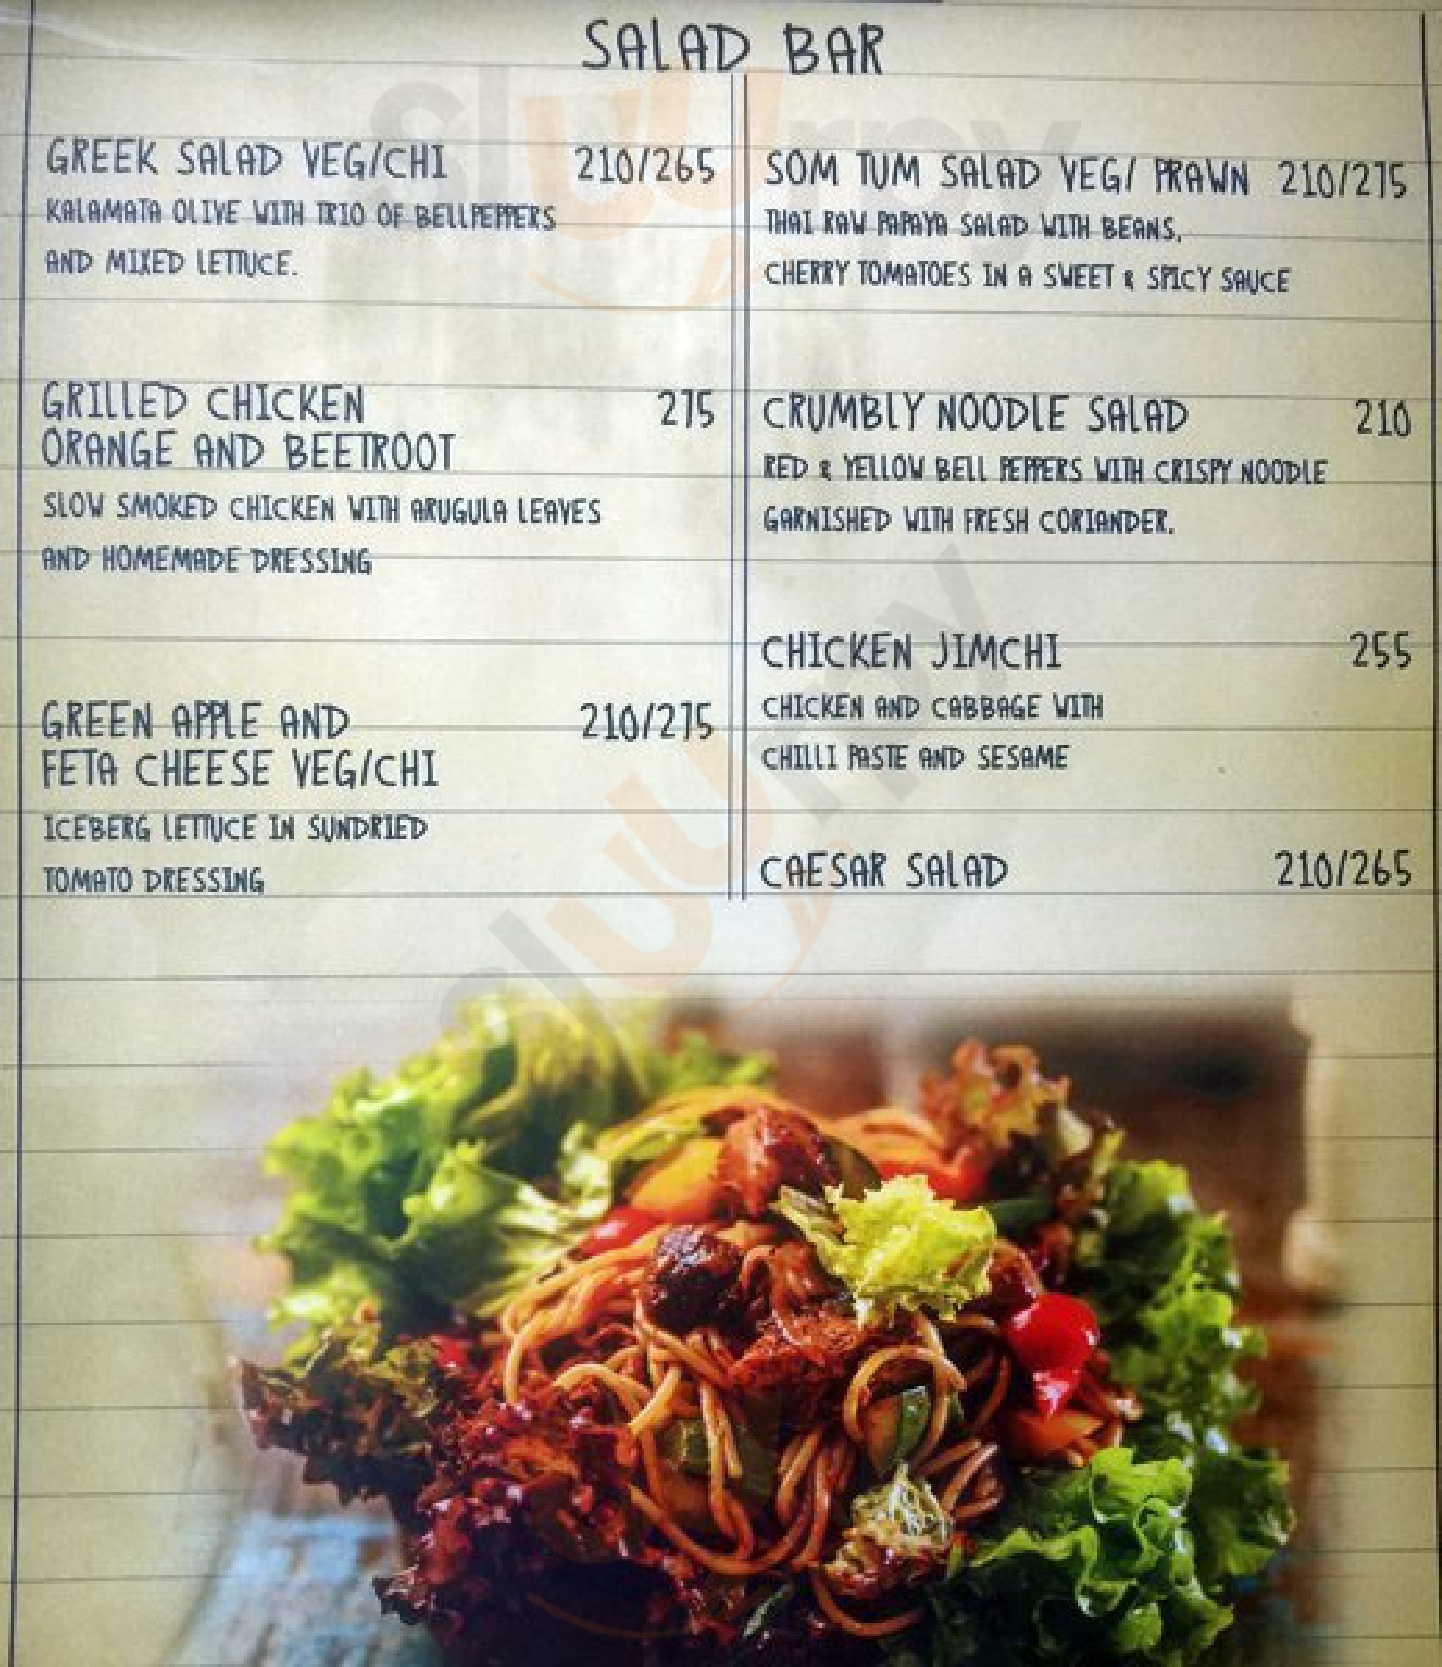 SALAD BAR
GREEK SALAD VEG/CHI 210/265
KALAMATA OLIVE WITH TRIO OF BELLPEPPERS
AND MIXED LETTUCE.
GRILLED CHICKEN 275
ORANGE AND BEETROOT
SLOW SMOKED CHICKEN WITH ARUGULA LEAVES
AND HOMEMADE DRESSING
GREEN APPLE AND 210/275
FETA CHEESE VEG/CHI
ICEBERG LETTUCE IN SUNDRIED
TOMATO DRESSING
SOM TUM SALAD VEG/ PRAWN 210/275
THAI RAW PAPAYA SALAD WITH BEANS,
CHERRY TOMATOES IN A SWEET & SPICY SAUCE
CRUMBLY NOODLE SALAD 210
RED & YELLOW BELL PEPPERS WITH CRISPY NOODLE
GARNISHED WITH FRESH CORIANDER.
CHICKEN JIMCHI 255
CHICKEN AND CABBAGE WITH
CHILLI PASTE AND SESAME
CAESAR SALAD 210/265
sluurpy
sluurpy